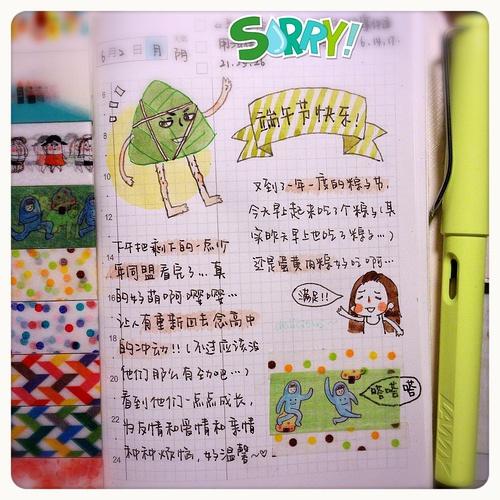 SORRY!
6月2日 月 阴
21.23.26
6.14.17.
端午节快乐!
又到了一年一度的粽子节,
今天早上起来吃了个粽子(其
实昨天早上也吃了粽子...)
还是蛋黄肉粽好吃啊...
满足!!
下午把剩下的一点少
年同盟看完了...真
的好萌啊嘤嘤...
让人有重新回去念高中
的冲动!!(不过应该没
他们那么有
看到他们一点点成长,
归与情和爱情和亲情
种种烦恼,好温馨~♡
嗒嗒嗒
8
10
12
14
16
18
20
22
24